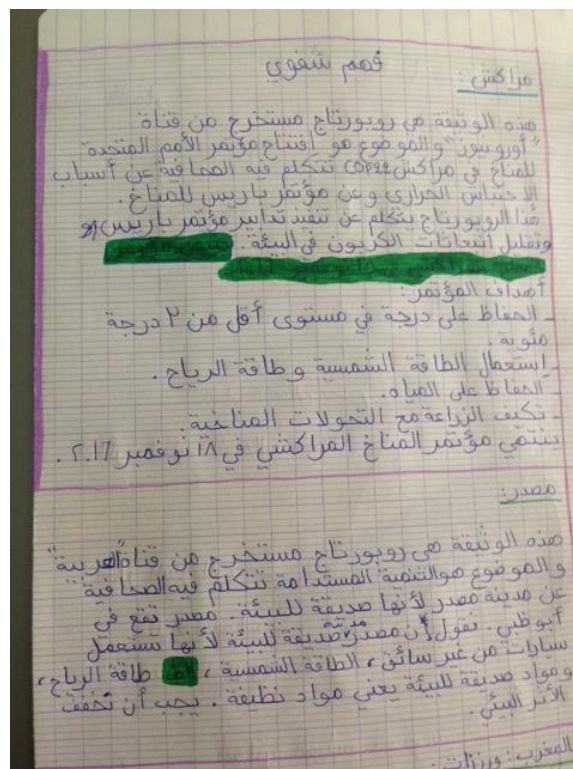 فهم شفوي
مراكش:
هذه الوثيقة هي روبورتاج مستخرج من قناة
"أورونيوز" والموضوع هو افتتاح مؤتمر الأمم المتحدة
للمناخ في مراكش COP22 تتكلم فيه الصحافية عن أسباب
الاحتباس الحراري وعن مؤتمر باريس للمناخ.
هذا الروبورتاج يتكلم عن تنفيد تدابير مؤتمر باريس 21
وتقليل انبعاثات الكربون في البيئة.
أهداف المؤتمر:
- الحفاظ على درجة في مستوى أقل من ٢ درجة
مئوية.
- إستعمال الطاقة الشمسية وطاقة الرياح.
- الحفاظ على المياه.
- تكيف الزراعة مع التحولات المناخية.
ينتهي مؤتمر المناخ المراكشي في ١٨ نوفمبر 2017.
مصدر:
هذه الوثيقة هي روبورتاج مستخرج من قناة "العربية"
والموضوع هو التنمية المستدامة تتكلم فيه الصحافية
عن مدينة مصدر لأنها صديقة للبيئة. مصدر تقع في
أبوظبي. نقول أن مصدر مدينة صديقة للبيئة لأنها تستعمل
سيارات من غير سائق، الطاقة الشمسية، طاقة الرياح،
ومواد صديقة للبيئة يعني مواد نظيفة. يجب أن نخفف
الأثر البيئي.
المغرب: ورززات: